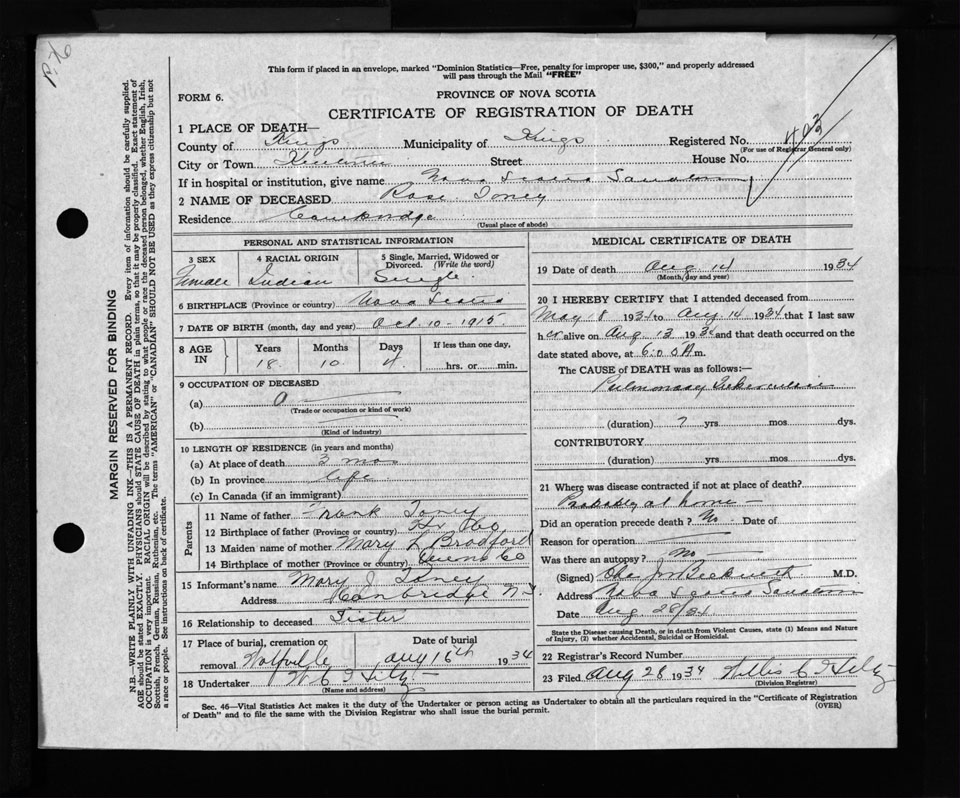 This form if placed in an envelope, marked "Dominion Statistics—Free, penalty for improper use, $300," and properly addressed
will pass through the Mail "FREE"
FORM 6.
PROVINCE OF NOVA SCOTIA
CERTIFICATE OF REGISTRATION OF DEATH
403
1 PLACE OF DEATH—
County of Kings Municipality of Kings Registered No.
(For use of Registrar General only)
City or Town Kentville Street House No.
If in hospital or institution, give name Nova Scotia Sanatorium
2 NAME OF DECEASED Rose Toney
Residence Cambridge
(Usual place of abode)
PERSONAL AND STATISTICAL INFORMATION
3 SEX 4 RACIAL ORIGIN 5 Single, Married, Widowed or
Divorced. (Write the word)
Female Indian Single
6 BIRTHPLACE (Province or country) Nova Scotia
7 DATE OF BIRTH (month, day and year) Oct. 10 - 1915
8 AGE IN Years Months Days If less than one day,
18 10 4 hrs. or min.
9 OCCUPATION OF DECEASED
(a) 0
(Trade or occupation or kind of work)
(b)
(Kind of industry)
10 LENGTH OF RESIDENCE (in years and months)
(a) At place of death 3 mos
(b) In province life
(c) In Canada (if an immigrant)
Parents
11 Name of father Frank Toney
12 Birthplace of father (Province or country)
13 Maiden name of mother Mary L Bradford
14 Birthplace of mother (Province or country) Queens Co
15 Informant's name Mary J. Toney
Address Cambridge N.S.
16 Relationship to deceased Sister
17 Place of burial, cremation or Date of burial
removal Wolfville Aug 16th 1934
18 Undertaker W C
(Name and address)
MEDICAL CERTIFICATE OF DEATH
19 Date of death Aug 14 1934
(Month, day and year)
20 I HEREBY CERTIFY that I attended deceased from
May 8 1934 to Aug 14 1934 that I last saw
her alive on Aug 13 1934 and that death occurred on
date stated above, at 6:05 A m.
The CAUSE OF DEATH was as follows:—
Pulmonary Tuberculosis
(duration) ? yrs mos dys.
CONTRIBUTORY
(duration) yrs mos dys.
21 Where was disease contracted if not at place of death?
Probably at home
Did an operation precede death? No Date of
Reason for operation
Was there an autopsy? No
(Signed) Beckwith M.D.
Address Nova Scotia Sanatorium
Date Aug 28/34
State the Disease causing Death, or in death from Violent Causes, state (1) Means and Nature
of Injury, (2) whether Accidental, Suicidal or Homicidal.
22 Registrar's Record Number
23 Filed Aug 28 1934 Willis C
(Division Registrar)
Sec. 46—Vital Statistics Act makes it the duty of the Undertaker or person acting as Undertaker to obtain all the particulars required in the "Certificate of Registration
of Death" and to file the same with the Division Registrar who shall issue the burial permit.
(OVER)
MARGIN RESERVED FOR BINDING
N.B.—WRITE PLAINLY WITH UNFADING INK—THIS IS A PERMANENT RECORD. Every item of information should be carefully supplied.
AGE should be stated EXACTLY. PHYSICIANS should STATE CAUSE OF DEATH in plain terms, so that it may be properly classified. Exact statement of
OCCUPATION is very important. RACIAL ORIGIN will be described by stating to what people or race the deceased person belonged, whether English, Irish,
Scottish, French, German, Russian, Ruthenian, etc. The terms "AMERICAN" or "CANADIAN" SHOULD NOT BE USED as they express citizenship but not
a race or people. See instructions on back of certificate.